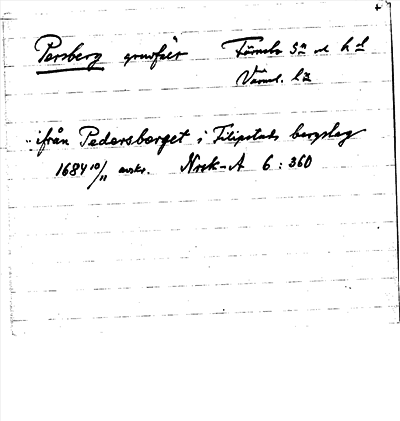 Persberg gruvfält Färnebo sn o hd
Värml. la
"ifrån Pedersberget i Filipstads bergslag
1684 10/11 avskr. Nrsk-A 6:360